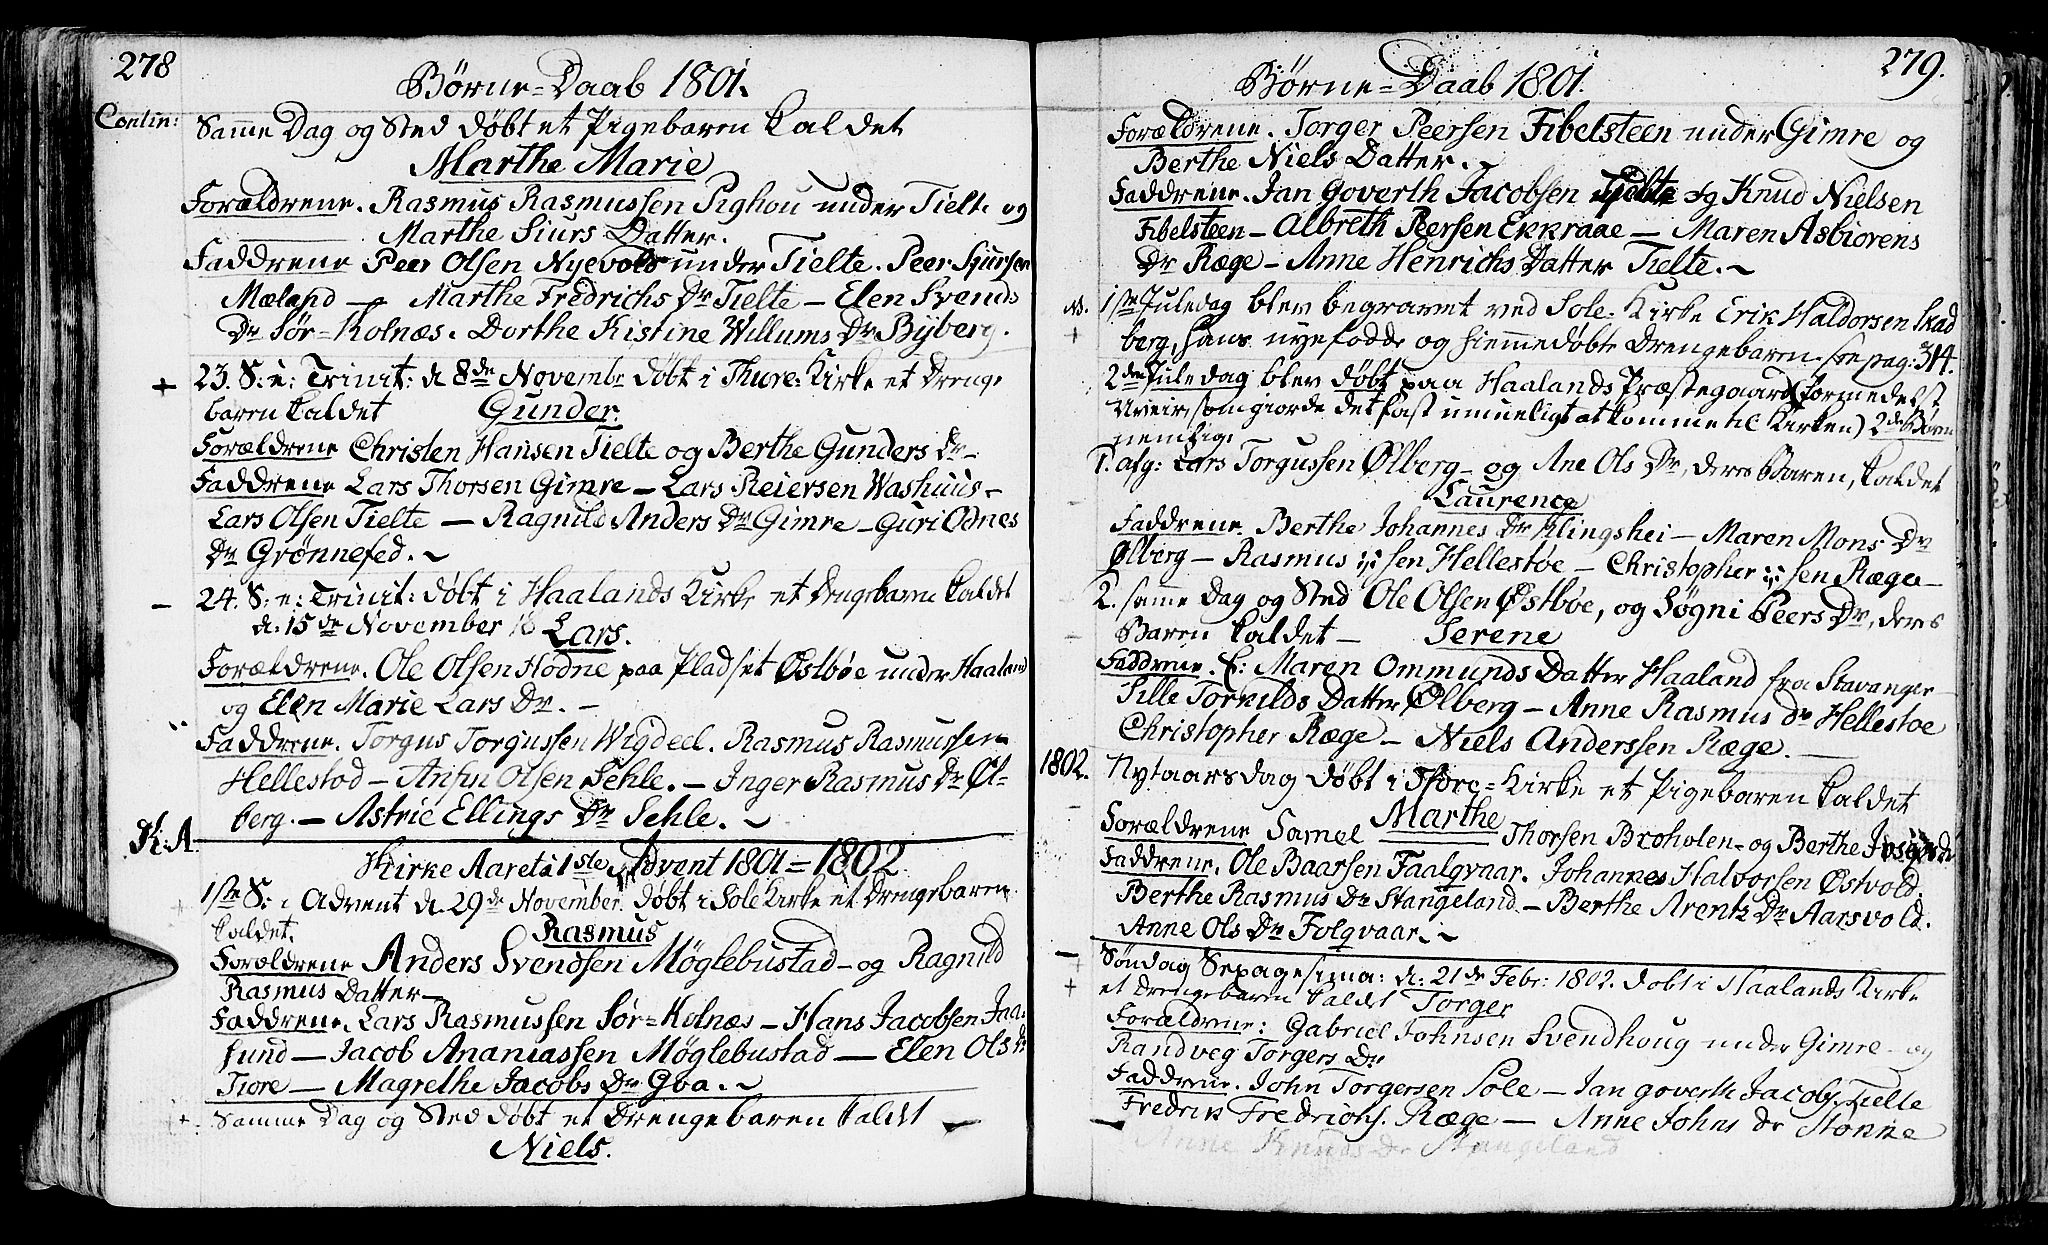 278
Børne=Daab 1801.
Contin: Samme Dag og Sted døbt et Pigebaren kaldet
Marthe Marie
Forældrene. Rasmus Rasmussen Pighou under Tielt. og
Marthe Siurs Datter.
Faddrene Peer Olsen Nyevold under Tielte. Peer Sjursen
Mæland — Marthe Fredrichs Dr Tielte — Elen Svends
Dr Sør=Kolnæs. Dorthe Kistine Willums Dr Byberg.
+ 23. S: e: Trinit: d 8de Novembr døbt i Thore: Kirke et Drenge
baren kaldet Gunder.
Forældrene Christen Hansen Tielte og Berthe Gunders Dr —
Faddrene Lars Thorsen Gimre — Lars Reiersen Washuus —
Lars Olsen Tielte — Ragnild Anders Dr Gimre — Guri Odnes
Dr Grønnefed. ~
— 24. S: e: Trinit: døbt i Haalands Kirke et Drengebaren kaldet
d: 15de November Lars.
Forældrene. Ole Olsen Hodne paa Pladset Østbøe under Haaland
og Elen Marie Lars Dr. —
Faddrene. Torgus Torgussen Wigdeel. Rasmus Rasmussen
Hellestod — Ansfin Olsen Sehle. — Inger Rasmus Dr Øl-
berg. — Astrie Ellings Dr Sehle. ~
K: A. Kirke Aaret i 1ste Advent 1801 = 1802
1ste S: i Advent d. 29de November. døbt i Sole Kirke et Drengebaren
kaldet. Rasmus
Forældrene Anders Svendsen Møglebustad — og Ragnild
Rasmus Datter —
Faddrene. Lars Rasmussen Sør=Kolnæs — Hans Jacobsen Jaa-
sund — Jacob Ananiassen Møglebustad — Elen Ols Dr
Tiore — Magrethe Jacobs Dr Goa. ~
+ Samme Dag og Sted døbt et Drengebaren kaldt —
Niels.
279.
Børne=Daab 1801.
Forældrene. Torger Peersen Fibelsteen under Gimre og
Berthe Niels Datter. ~
Faddrene. Jan Goverth Jacobsen Tielte og Knud Nielsen
Fibelsteen — Albreth Peersen Ekkraae — Maren Asbiorens
Dr Ræge — Anne Henrichs Datter Tielte. ~
+ 1ste Juledag blev begravet ved Sole. Kirke Erik Haldorsen Skad
berg, hans nyefødde og hiemmedøbte Drengebaren. see pag: 314.
2den Juledag blev døbt paa Haalands Præstegaard (formedelst
Uveir, som giorde det fast umueligt at komme til Kirken) 2de Børn
nemlig.
1. afg: Lars Torgussen Ølberg — og Ane Ols Dr, deres Baren, kaldet
Laurence
Faddrene. Berthe Johannes Dr Klingshei — Maren Mons Dr
Ølberg — Rasmus sen Hellestøe — Christopher sen Ræge —
2. same Dag og Sted Ole Olsen Østbøe, og Søgni Peers Dr, deres
Baren kaldet — Serene
Faddrene. Maren Ommunds Datter Haaland fra Stavanger
Sille Torkilds Datter Ølberg — Anne Rasmus dr Hellestoe
Christopher Ræge — Niels Anderssen Ræge. —
1802. Nytaarsdag døbt i Thore=Kirke et Pigebaren kaldet
Marthe
Forældrene Samel Thorsen Broholen — og Berthe
Faddrene. Ole Baarsen Faalgvaar. Johannes Halvorsen Østvold.
Berthe Rasmus Dr Stangeland. — Berthe Arentz Dr Aarsvold.
Anne Ols Dr Folgvaar. ~
+ Søndag Sepagesima: d: 21de Febr: 1802. døbt i Haalands Kirke
et Drengebaren kaldt Torger
Forældrene: Gabriel Johnsen Svendhoug under Gimre — og
Randveg Torgers Dr
Faddrene. John Torgersen Sole — Jan goverth Jacobs. Tielte
Fredrik Fredrichs. Ræge — Anne Johns dr Stonne
Anne Knuds Dr Stangeland